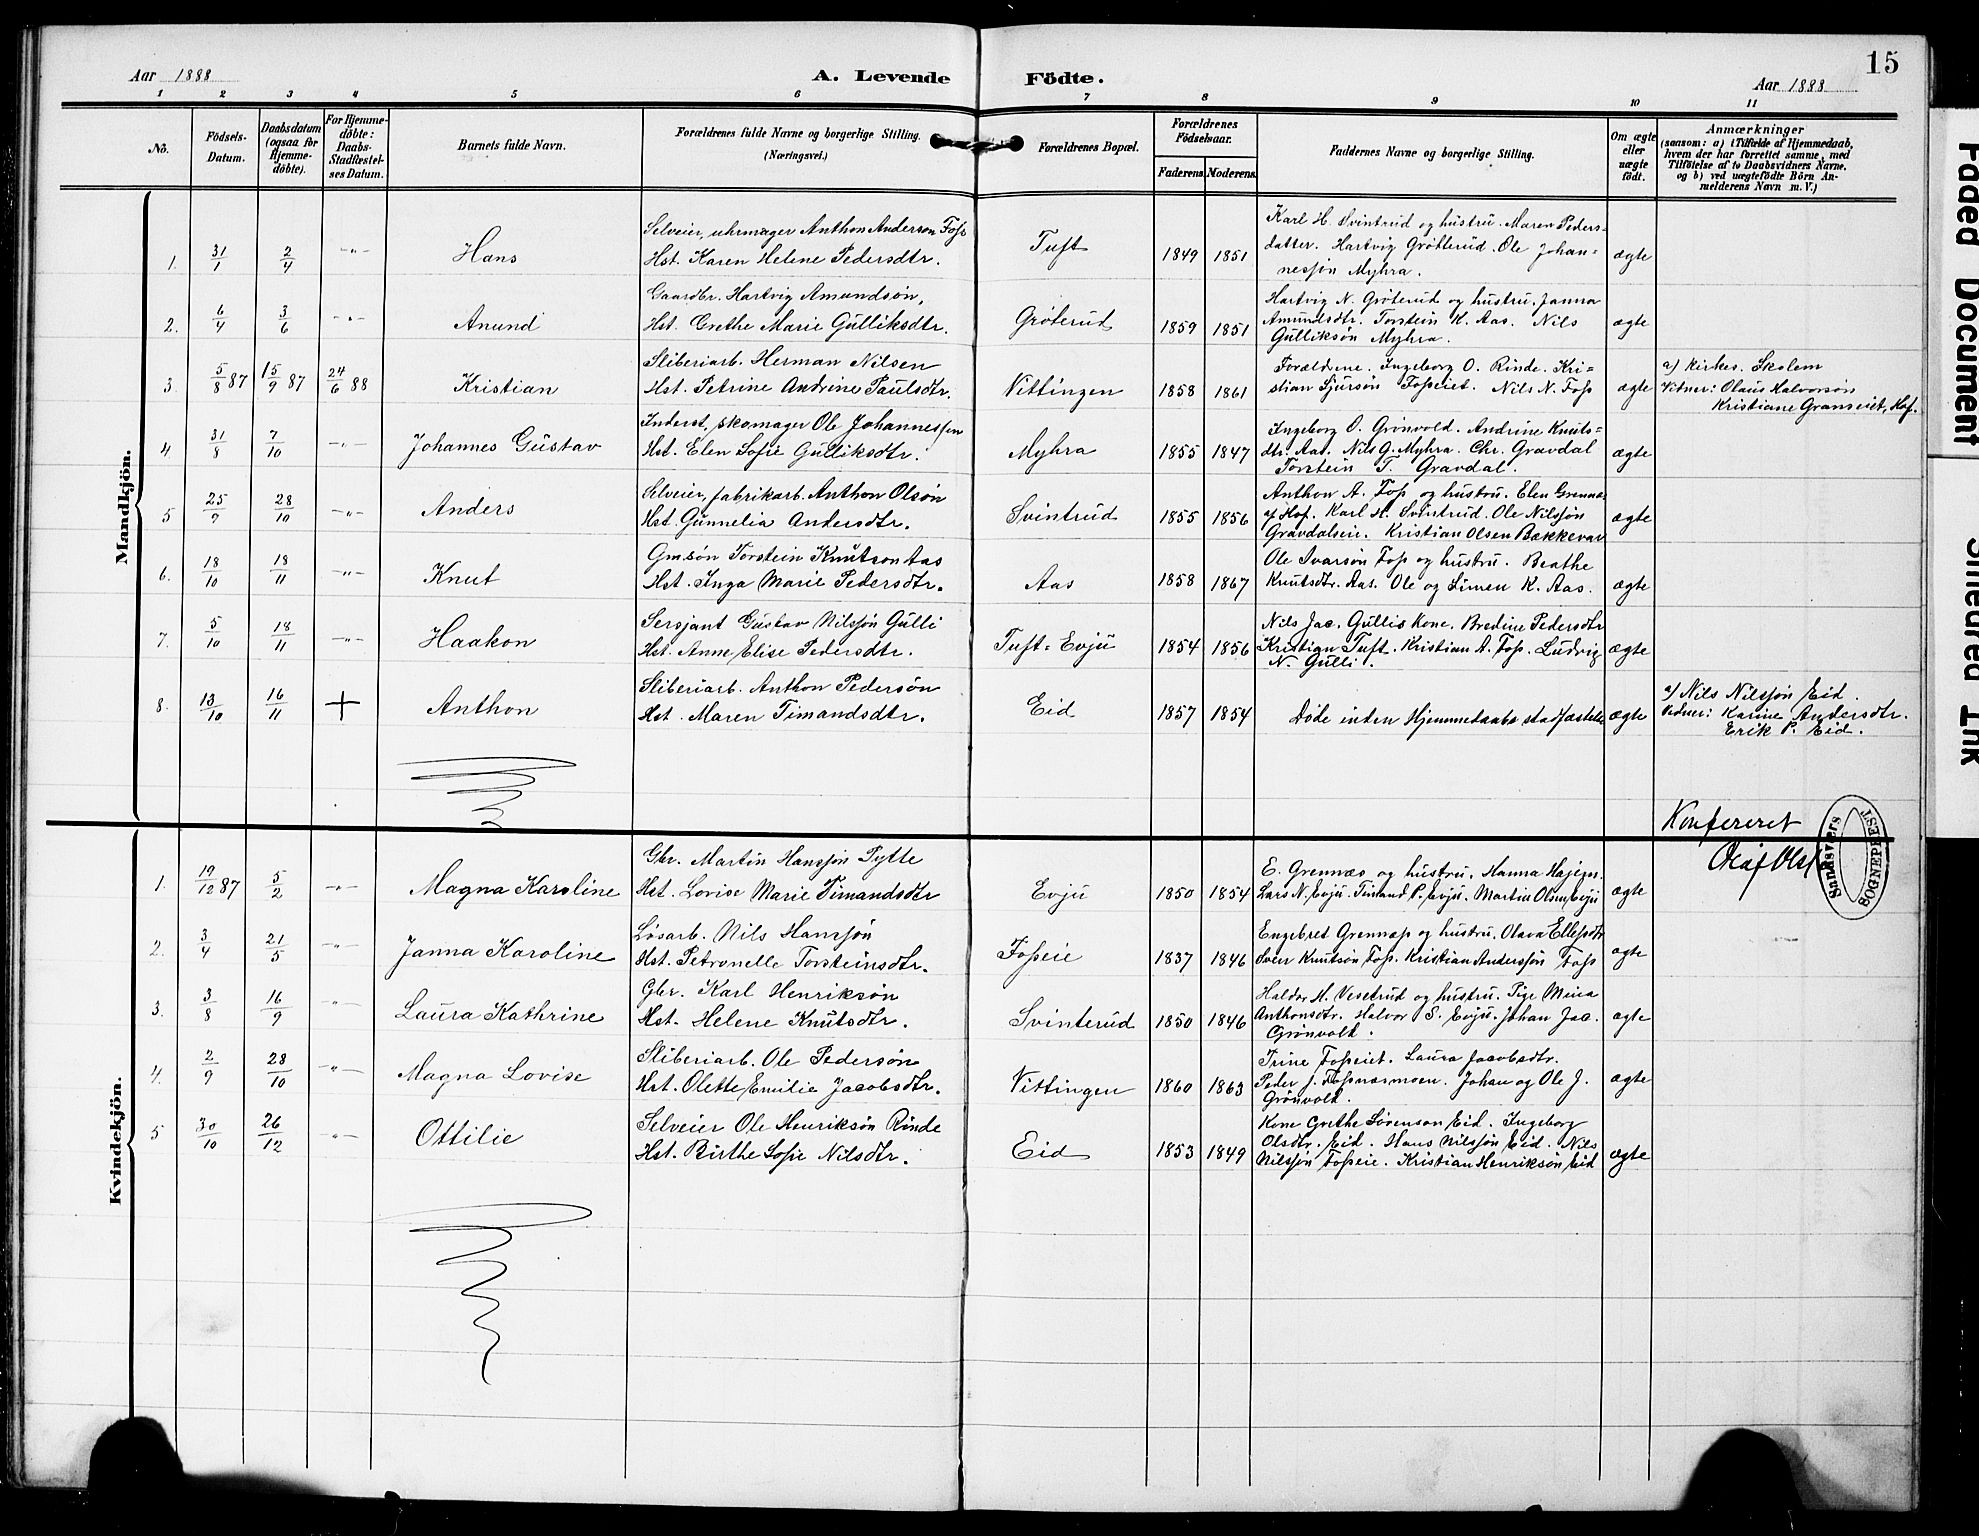 15
Aar 1888 A. Levende Födte. Aar 1888
1 2 3 4 5 6 7 8 9 10 11
No.
Födsels-
Datum.
Daabsdatum
(ogsaa for
Hjemme-
döbte).
For Hjemme-
döbte:
Daabs-
Stadfæstel-
ses Datum.
Barnets fulde Navn.
Forældrenes fulde Navne og borgerlige Stilling.
(Næringsvei.)
Forældrenes Bopæl.
Forældrenes
Födselsaar.
Faderens. Moderens.
Faddernes Navne og borgerlige Stilling.
Om ægte
eller
uægte
födt.
Anmærkninger
(saasom: a) i Tilfælde af Hjemmedaab,
hvem der har forrettet samme, med
Tilföielse af to Daabsvidners Navne.
og b) ved uægtefödte Börn An-
melderens Navn m. V.)
Mandkjön.
1. 31/1 2/4 -"- Hans
Selveier, uhrmager Anthon Anderson Foss
Hst. Karen Helene Pedersdtr.
Tuft 1849 1851
Karl H. Svintrud og hustru. Maren Peders-
datter. Hartvig Grötterud. Ole Johan-
nesson Myhra.
ægte
2. 6/4 3/6 -"- Anund
Gaardbr. Hartvig Amundsön,
Hst. Grethe Marie Gulliksdtr.
Gröterud 1859 1851
Hartvig N. Gröterud og hustru. Janna
Amundsdtr. Torstein K. Aas. Nils
Gulliksön Myhra.
ægte
3. 5/8 87 15/9 87 24/6 88 Kristian
Sliberiarb. Herman Nilsen
Hst. Petrine Andrine Paulsdtr.
Vittingen 1858 1861
Forældrene. Ingeborg O. Rinde. Kri-
stian Sjursön Fosseiet. Nils N. Foss
ægte
a) Kirkes. Skolem
Vidner: Olaus Halvorsön
Kristiane Granseiet, Hof.
4. 31/8 7/10 -"- Johannes Gustav
Inderst, skomager Ole Johannessen
Hst. Elen Sofie Gulliksdtr.
Myhra 1855 1847
Ingeborg O. Grönvold. Andrine Knuts-
dtr. Aas. Nils G. Myhra. Chr. Gravdal
Torstein T. Gravdal.
ægte
5 25/9 28/10 -"- Anders
Selveier, fabrikarb. Anthon Olsön
Hst. Gunnelia Andersdtr.
Svintrud 1855 1856
Anthon A. Foss og hustru. Elen Grenna
af Hof. Karl H. Svintrud. Ole Nilssön
Gravdalseie. Kristian Olsen Bækkevar
ægte
6. 18/10 18/11 -"- Knut
Gmsön Torstein Knutson Aas
Hst. Inga Marie Pedersdtr.
Aas 1858 1867
Ole Ivarsön Foss og hustru. Beathe
Knutsdtr. Aas. Ole og Simen K. Aas.
ægte
7. 5/10 18/11 -"- Haakon
Sersjant Gustav Nilssön Gulli
Hst. Anne Elise Pedersdtr.
Tuft-Evju 1854 1856
Nils Jac. Gullis Kone. Bredine Pedersdtr
Kristian Tuft. Kristian A. Foss. Ludvig
N. Gulli.
ægte
8. 13/10 16/11 + Anthon
Sliberiarb. Anthon Pedersön
Hst. Maren Timandsdtr.
Eid 1857 1854
Döde inden Hjemmedaabs stadfæstelse
ægte
a) Nils Nilssön Eid.
Vidner: Karine Andersdtr.
Erik P. Eid.
Konfereret
Olaf Olsen
Sandsvers
SOGNEPREST
Kvindekjön.
1. 19/12 87 5/2 -"- Magna Karoline
Gbr. Martin Hanssön Pytte
Hst. Lovise Marie Timandsdtr
Evju 1850 1854
E. Grennæs og hustru. Hanna Hajem.
Lars N. Evju. Timand P. Evju. Martin Olsen Evju
ægte
2. 3/4 21/5 -"- Janna Karoline
Lösarb. Nils Hanssön
Hst. Petronelle Torsteinsdtr.
Fosseie 1837 1846
Engebret Grennæs og hustru. Olava Ellefsdtr
Sver Knutsön Foss. Kristian Anderssön Foss
ægte
3. 3/8 16/9 -"- Laura Kathrine
Gbr. Karl Henriksön
Hst. Helene Knutsdtr.
Svinterud 1850 1846
Haldor H. Vesetrud og hustru. Pige Mina
Anthonsdtr. Halvor S. Evju. Johan Jac.
Grönvolt.
ægte
4. 2/9 28/10 -"- Magna Lovise
Sliberiarb. Ole Pedersön
Hst. Olette Emilie Jacobsdtr.
Vittingen 1860 1863
Trine Fosseiet. Laura Jacobsdtr.
Peder J. Fossnæsmoen. Johan og Ole J.
Grönvolt.
ægte
5 30/10 26/12 -"- Ottilie
Selveier Ole Henriksön Rinde
Hst. Birthe Sofie Nilsdtr.
Eid 1853 1849
Kone Grethe Sörenson Eid. Ingeborg
Olsdtr. Eid. Hans Nilssön Eid. Nils
Nilssön Fosseie. Kristian Henriksön Eid
ægte
Faded Document
Smeared Ink